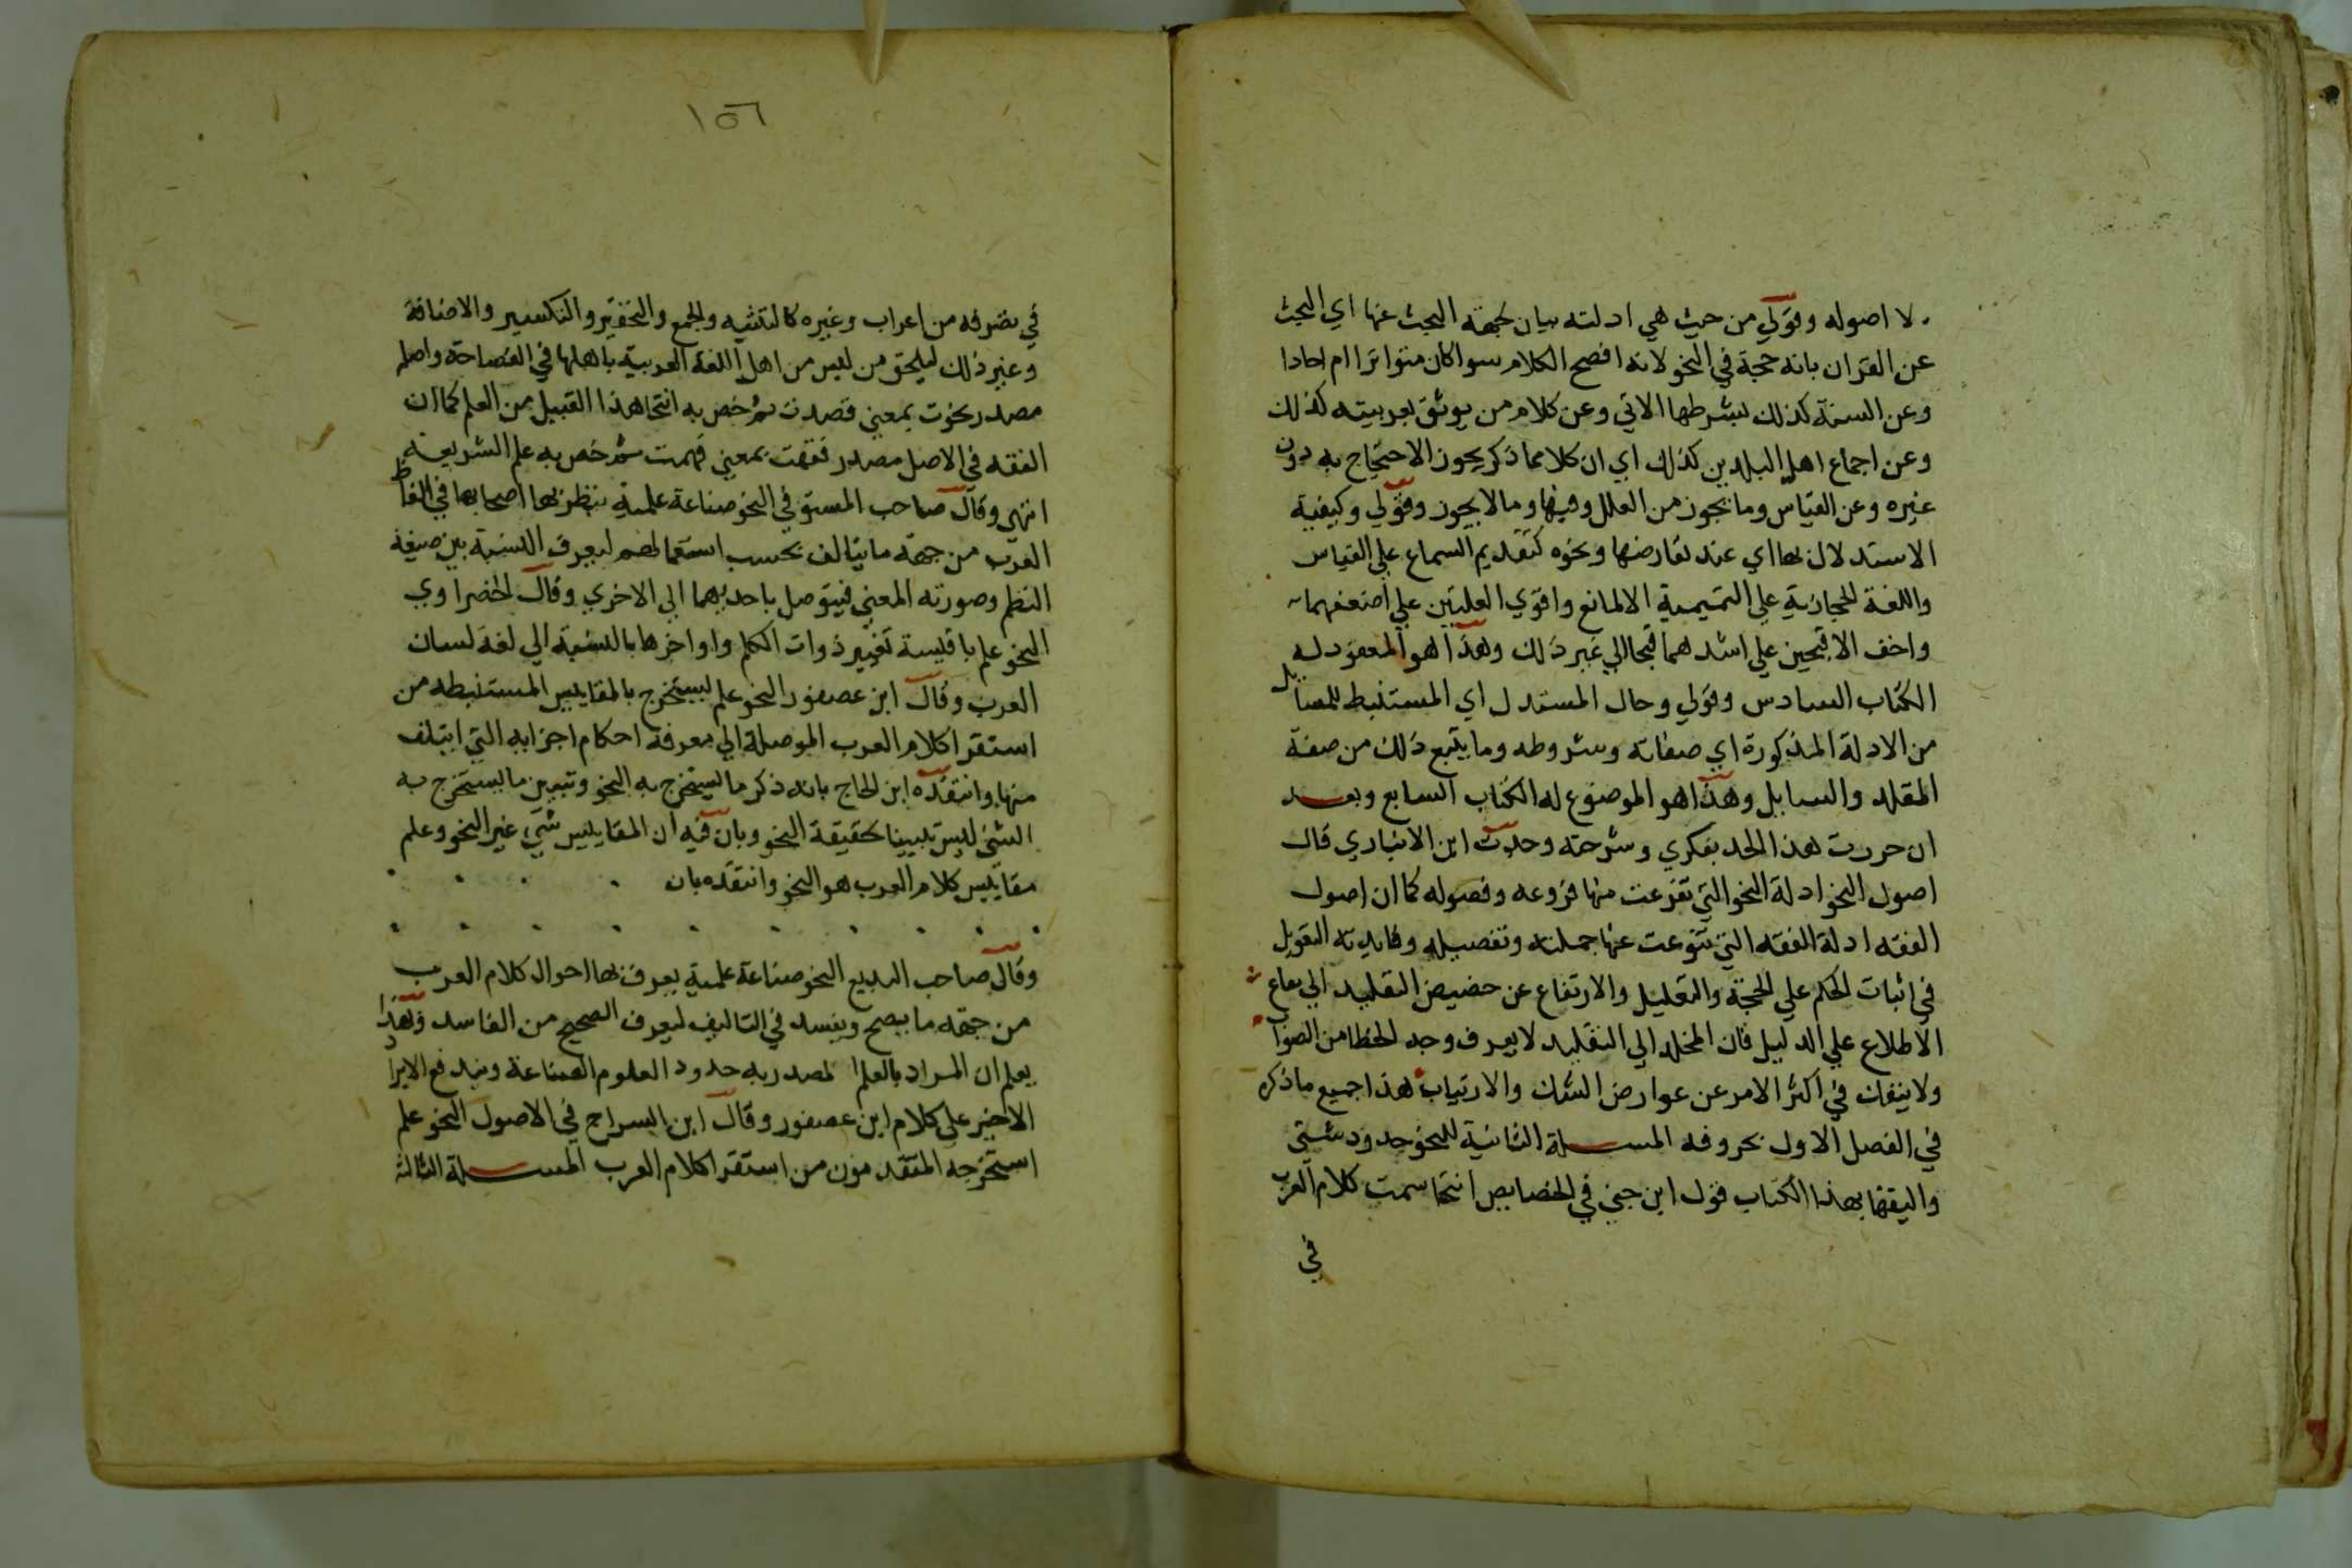 لا اصوله وقولي من حيث هي ادلته بيان لجهة البحث عنها اي البحث
عن القران بانه حجة في النحو لانه افصح الكلام سوا كان متواترا ام احادا
وعن السنة كذلك بشرطها الاتي وعن كلام من يوثق بعربيته كذلك
وعن اجماع اهل البلدين كذلك اي ان كلا مما ذكر يجوز الاحتجاج به دون
غيره وعن القياس وما يجوز من العلل وفيها وما لا يجوز وقولي وكيفية
الاستدلال بها اي عند تعارضها ونحوه كتقديم السماع علي القياس
واللغة الحجازية علي التميمية الا لمانع واقوي العلتين علي اضعفهما
واخف الاقبحين علي اشدهما قبحا الي غير ذلك وهذا هو المعقود له
الكتاب السادس وقولي وحال المستدل اي المستنبط للمسايل
من الادلة المذكورة اي صفاته وشروطه وما يتبع ذلك من صفة
المقلد والسايل وهذا هو الموضوع له الكتاب السابع وبعد
ان حررت هذا الحد بفكري وشرحته وجدت ابن الانباري قال
اصول النحو ادلة النحو التي تفرعت منها فروعه وفصوله كما ان اصول
الفقه ادلة الفقه التي تنوعت عنها جملته وتفصيله وفايدته التعويل
في اثبات الحكم علي الحجة والتعليل والارتفاع عن حضيض التقليد الي يفاع
الاطلاع علي الدليل فان المخلد الي التقليد لا يعرف وجه الخطا من الصواب
ولا ينفك في اكثر الامر عن عوارض الشك والارتياب هذا جميع ما ذكره
في الفصل الاول بحروفه المسلة الثانية للنحو حدود شتي
واليقها بهذا الكتاب قول ابن جني في الخصايص انتحا سمت كلام العرب
في
١٥٦
في تصرفه من اعراب وغيره كالتثنيه والجمع والتحقير والتكسير والاضافة
وغير ذلك ليلحق من ليس من اهل اللغة العربية باهلها في الفصاحة واصله
مصدر نحوت بمعني قصدت ثم خص به انتحا هذا القبيل من العلم كما ان
الفقه في الاصل مصدر فقهت بمعني فهمت ثم خص به علم الشريعة
انتهي وقال صاحب المستوفي النحو صناعة علمية ينظر بها اصحابها في الفاظ
العرب من جهة ما يتالف بحسب استعمالهم ليعرف النسبة بين صيغة
النظم وصورته المعني فيتوصل باحديهما الي الاخري وقال الخضراوي
النحو علم باقيسة تغيير ذوات الكلم واواخرها بالنسبة الي لغة لسان
العرب وقال ابن عصفور النحو علم ليستخرج بالمقاييس المستنبطه من
استقرا كلام العرب الموصلة الي معرفة احكام اجزايه التي ايتلف
منها وانتقده ابن الحاج بانه ذكر ما يستخرج به النحو وتبيين ما يستخرج به
الشي ليس تبيينا لحقيقة النحو وبان فيه ان المقاييس شي غير النحو وعلم
مقاييس كلام العرب هو النحو وانتقده بان
وقال صاحب البديع النحو صناعة علمية يعرف بها احوال كلام العرب
من جهة ما يصح ويفسد في التاليف ليعرف الصحيح من الفاسد وبهذا
يعلم ان المراد بالعلم المصدر به حدود العلوم الصناعة ويندفع الايراد
الاخير علي كلام ابن عصفور وقال ابن السراج في الاصول النحو علم
استخرجه المتقدمون من استقرا كلام العرب المسلة الثالثة